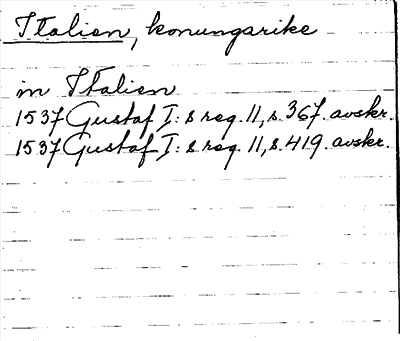 Italien, konungarike
in Italien
1537 Gustaf I: s reg. 11, s. 367. avskr.
1537 Gustaf I: s reg. 11, s. 419. avskr.